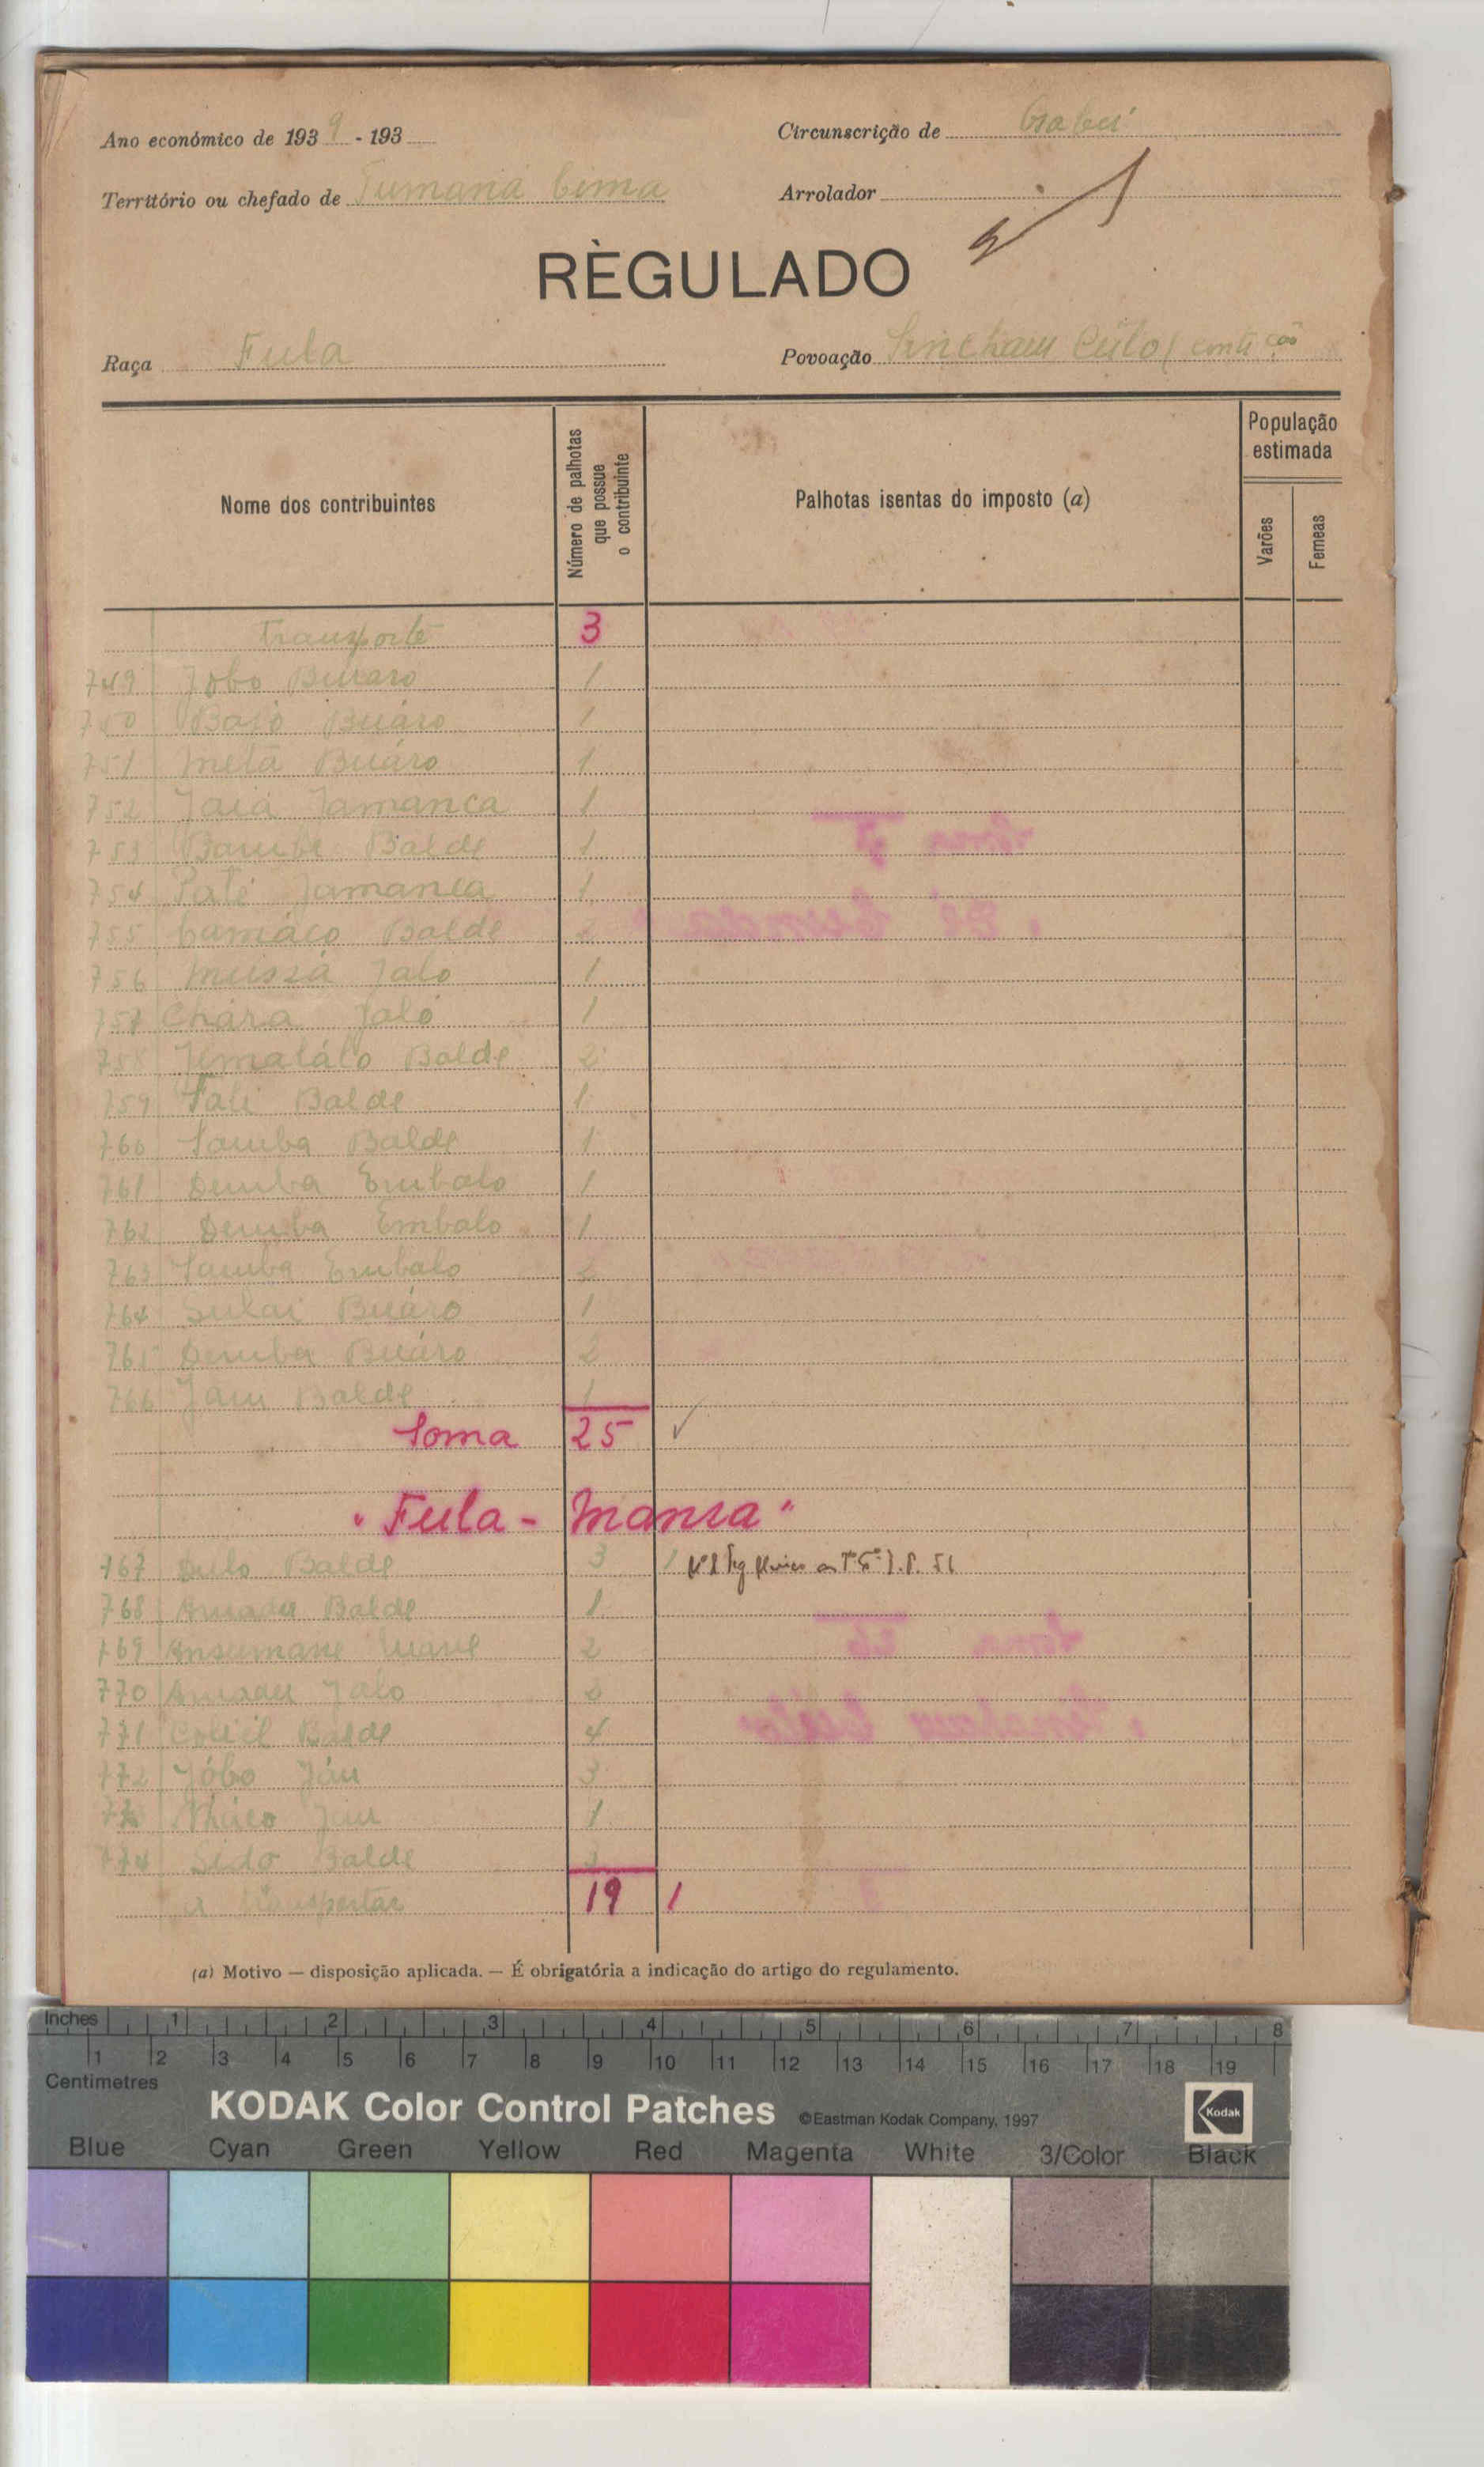 Ano económico de 1939 - 193
Circunscrição de Gabú
Território ou chefado de Tumaná Cima
Arrolador
RÈGULADO
Raça Fula
Povoação Sincham
Nome dos contribuintes
Número de palhotas que possue o contribuinte
Palhotas isentas do imposto (a)
População estimada
Varões
Femeas
Transporte 3
749 Jobo Buaro 1
750 Bajó Buáro 1
751 Meta Buáro 1
752 Jaiá Jamanca 1
753 Bambé Balde 1
754 Paté Jamanca 1
755 Balde 2
756 Mussá Jaló 1
757 Chára Jaló 1
758 Balde 2
759 Balde 1
760 Samba Balde 1
761 Demba Embalo 1
762 Demba Embalo 1
763 Samba Embalo 2
764 Sulai Buáro 1
765 Demba Buáro 2
766 Balde 1
Soma 25
"Fula - Mansa"
767 Balde 3 1
768 Amadu Balde 1
769 Ansumane 2
770 Amadu Jaló
771 Balde 4
772 Jóbo Jáu 3
773 Jau 1
774 Sido Balde
A transportar 19 1
(a) Motivo — disposição aplicada. — É obrigatória a indicação do artigo do regulamento.
Inches 1 2 3 4 5 6 7 8
1 2 3 4 5 6 7 8 9 10 11 12 13 14 15 16 17 18 19
Centimetres
KODAK Color Control Patches ©Eastman Kodak Company, 1997 Kodak
Blue Cyan Green Yellow Red Magenta White 3/Color Black